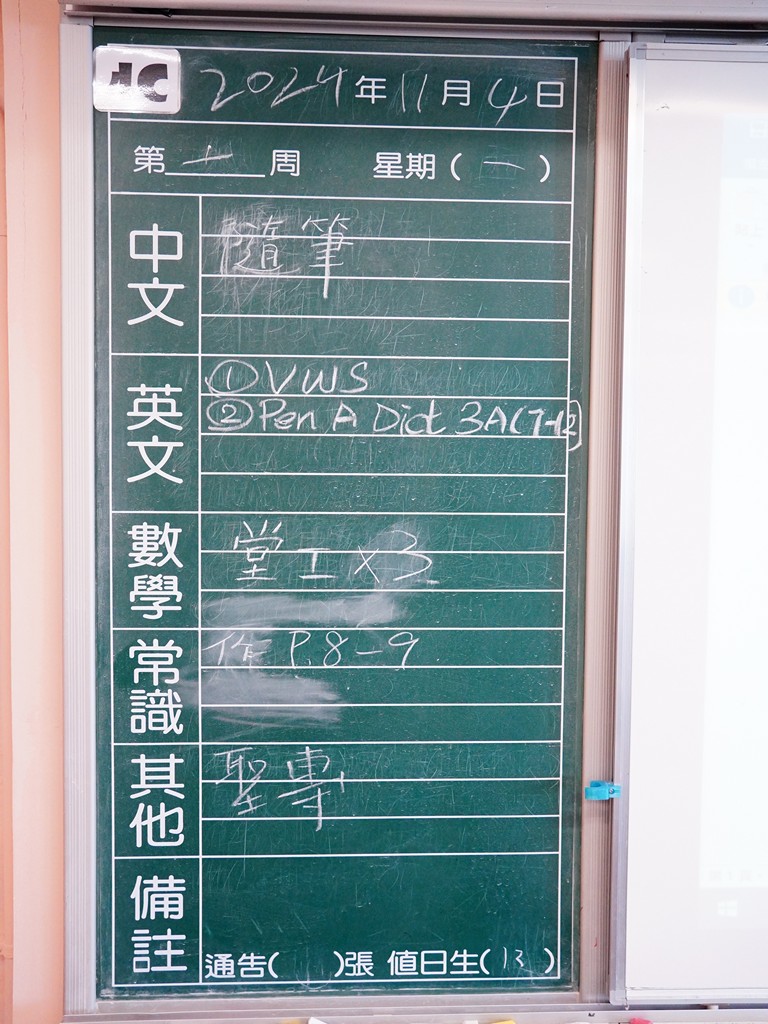 4C
2024年11月4日
第十周 星期(一)
中文
隨筆
英文
①VWS
②Pen A Dict 3A(7-12)
數學
堂工x3
常識
作 P.8-9
其他
聖專
備註
通告( )張 值日生(13)